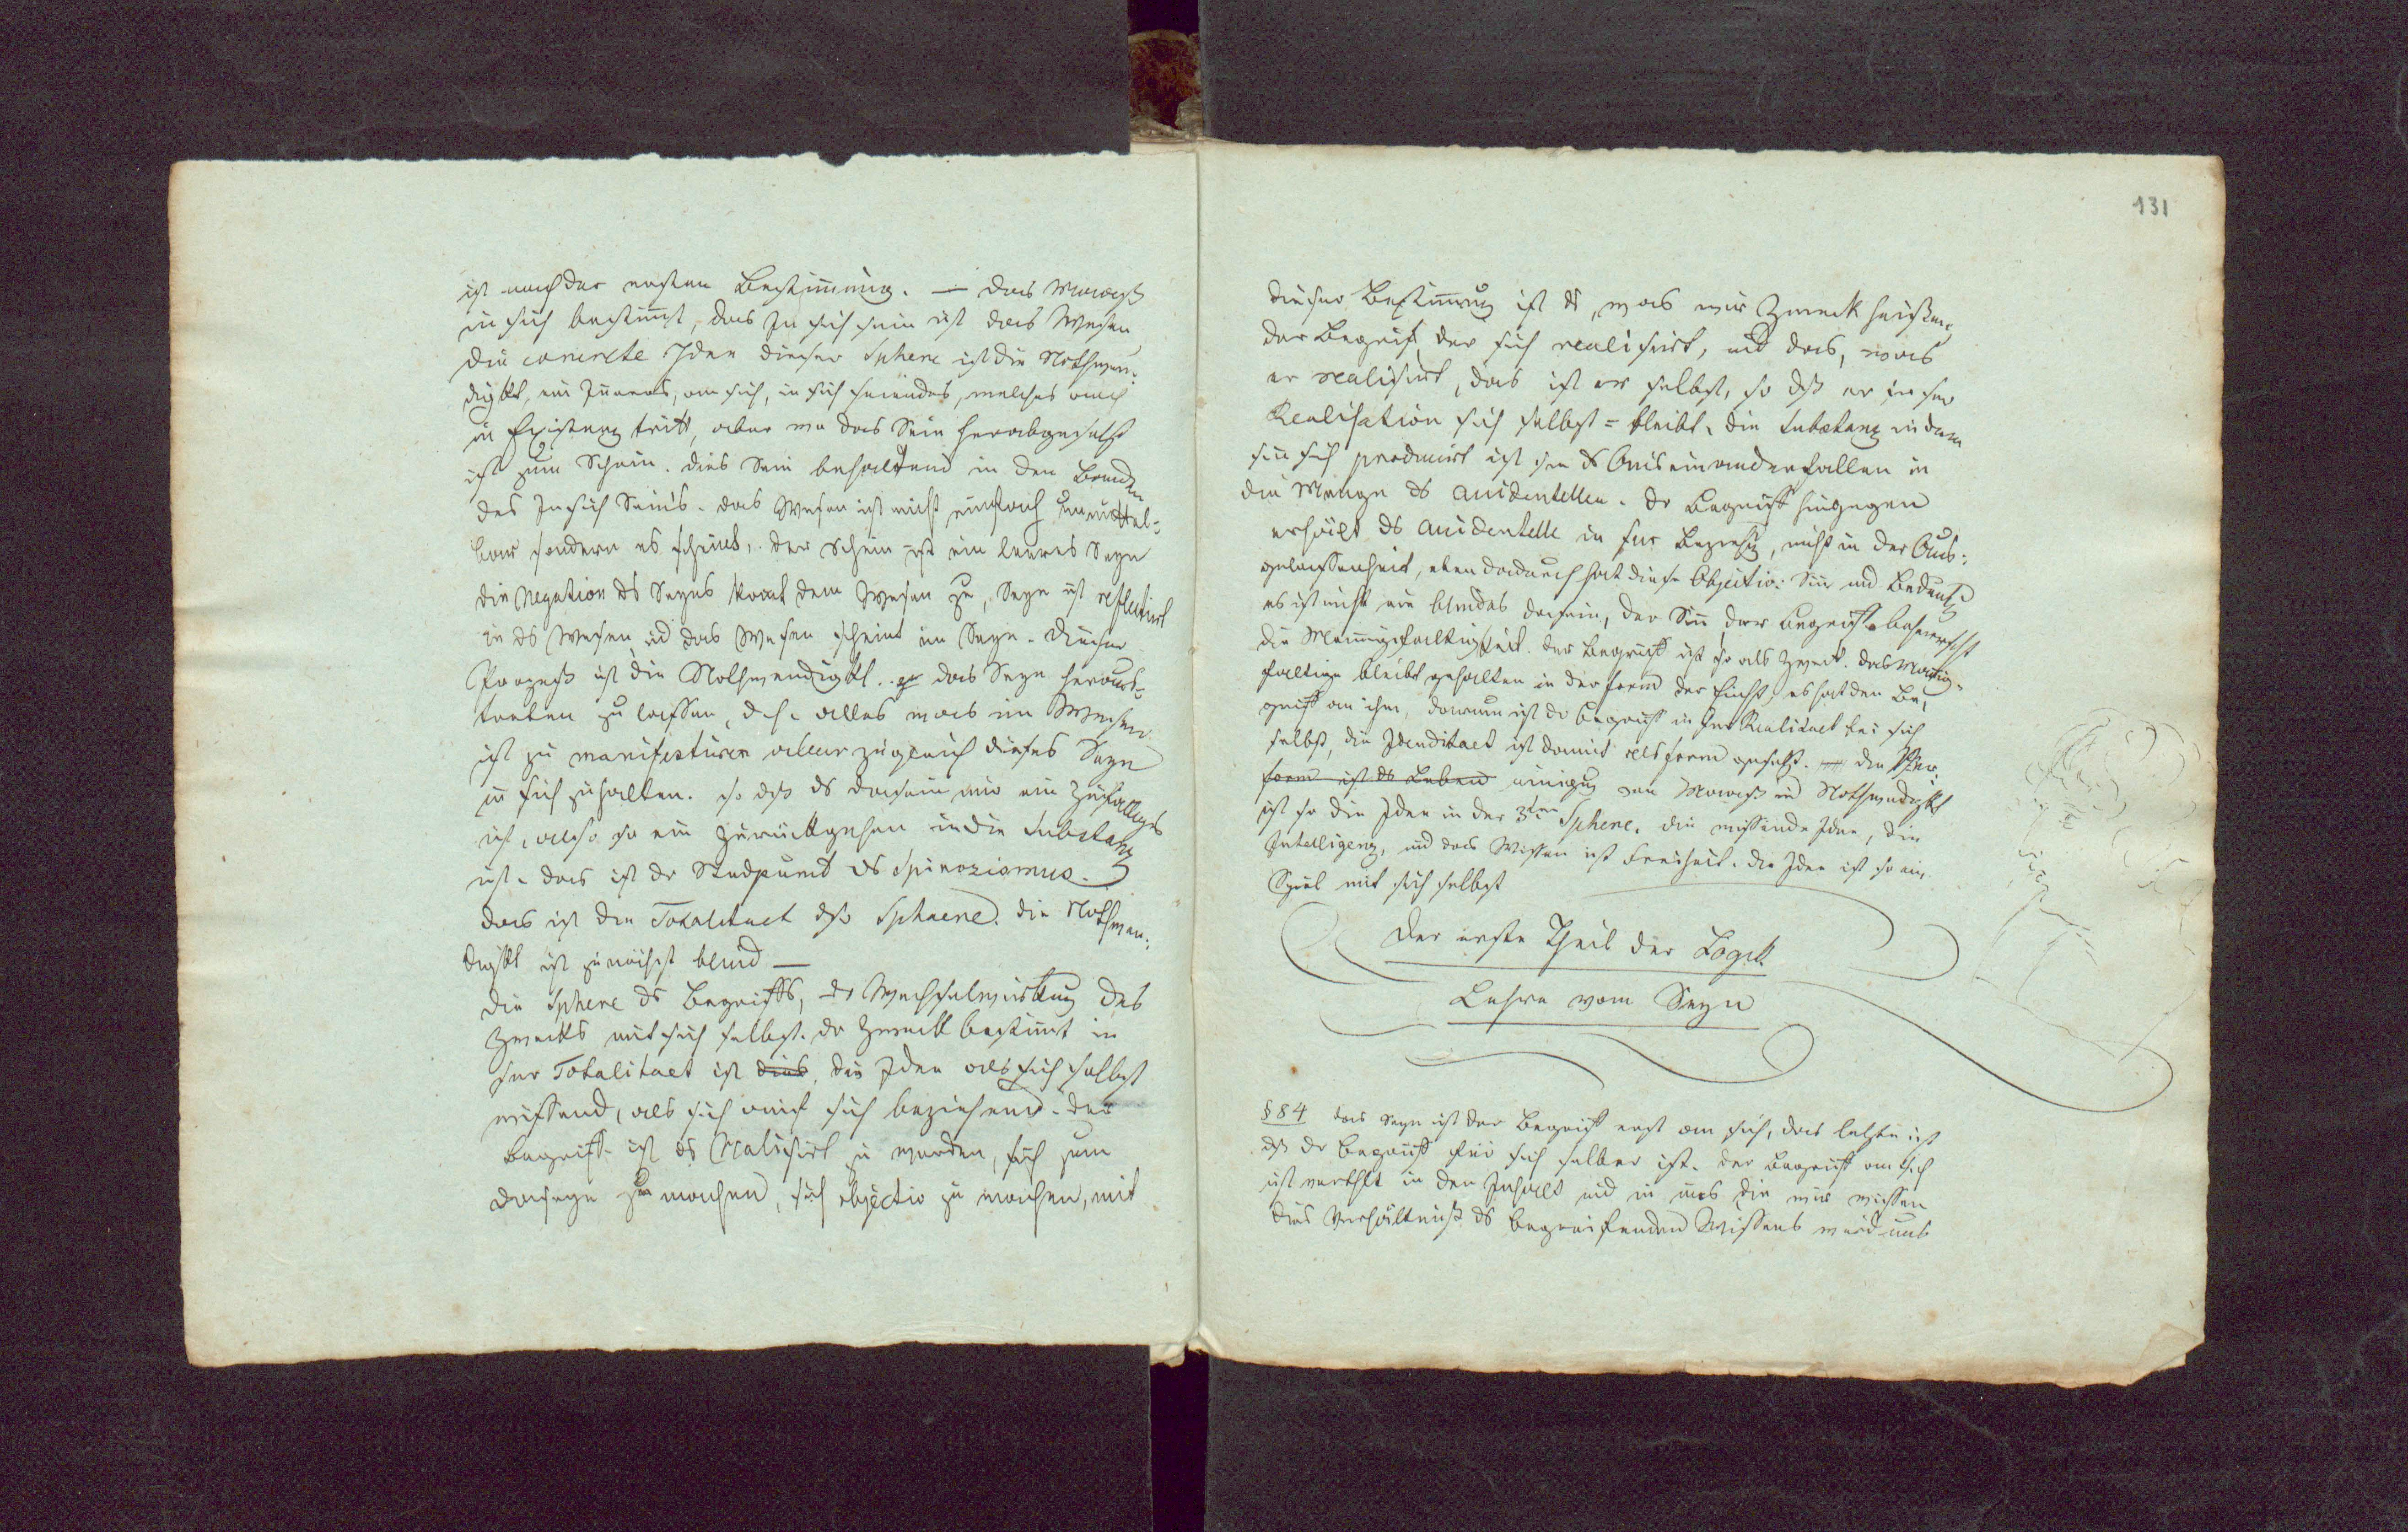 ist nach der ersten Bestimmung. — das Maaß
in sich bestimmt, das In sich sein ist das Wesen
die concrete Idee dieser Sphere ist die Nothwen-
digkt, ein Inneres, an sich, in sich seiendes, welches auch
in Existenz tritt, aber wo das Sein herabgesetzt
ist zum Schein. dies Sein behaltend in den Banden
des Insich Seins. das Wesen ist nicht einfach unmittel-
bar sondern es scheint, der Schein ist ein leeres Seyn
die Negation ds Seyns komt dem Wesen zu, Seyn ist reflectirt
in ds Wesen, ud das Wesen scheint im Seyn. dieser
Prozeß ist die Nothwendigkt. das Seyn heraus-
treten zu lassen, d. h. alles was im Wesen
ist zu manifestiren aber zugleich dieses Seyn
in sich zu halten. so dß ds Dasein nur ein Zufälliges
ist, also so ein Zurückgehen in die Substanz
ist. das ist dr Standpunct ds Spinozismus.
das ist die Totalitaet dsr Sphaere. die Nothwen-
digkt ist zunächst blind —
die Sphere ds Begriffs, dr Wechselwirkung des
Zwecks mit sich selbst. dr Zweck bestimmt in
sr Totalitaet ist dies, die Idee als sich selbst
wissend, als sich auf sich beziehend. der
Begriff ist ds Realisirt zu werden, sich zum
Daseyn zu machen, sich objectiv zu machen, mit
131
dieser Bestimmung ist ds, was wir Zweck heißen,
der Begriff, der sich realisirt, ud das, was
er realisirt, das ist er selbst, so dß er in sr
Realisation sich selbst = bleibt. die Substanz indem
sie sich producirt ist ds Auseinanderfallen in
die Menge ds accidentellen. dr Begriff hingegen
erhält ds accidentelle in sr Beziehg, nicht in der Aus-
gelassenheit, eben dadurch hat diese Objectiv: Sinn und Bedeutg
es ist nicht ein blindes dasein, der Sinn, der Begriff beherrscht
die Mannigfaltigkeit. der Begriff ist so als Zweck. das Mannig-
faltige bleibt gehalten in der Form der Einht, es hat den Be-
griff an ihm, darum ist dr Begriff in sr Realitaet bei sich
selbst, die Idenditaet ist damit als Form gesetzt. die Ver-
form ist ds Leben einigung von Maaß ud Nothwendigkt
ist so die Idee in der 3ten Sphere. die wissende Idee, die
Intelligenz, und das Wissen ist Freiheit. die Idee ist so ein
Spiel mit sich selbst
Der erste Theil der Logik
Lehre vom Seyn
§ 84 das Seyn ist der Begriff erst an sich, das letzte ist
dß dr Begriff für sich selber ist. der Begriff an sich
ist verthlt in den Inhalt ud in uns die wir wissen
dies Verhältniß ds begreifenden Wissens wird uns